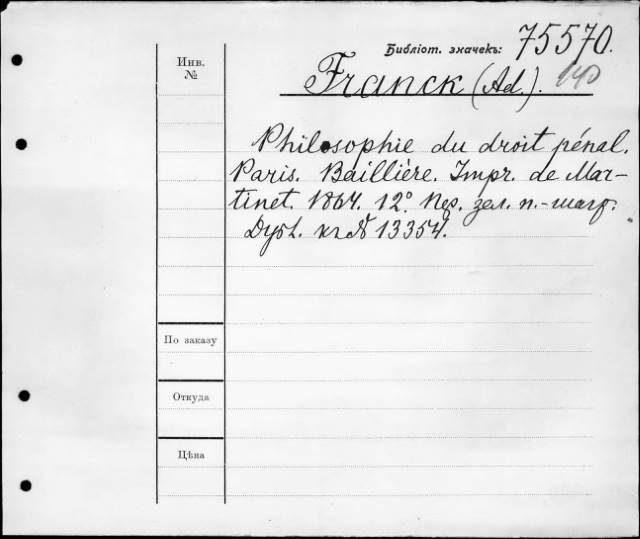 Библіот. значекъ: 75570.
Инв.
№
Franck (Ad.).
Philosophie du droit pénal.
Paris. Baillière. Impr. de Mar-
tinet. 1864. 12º. Пер. зел. п.-шагр.
Дубл. къ № 13354.
По заказу
Откуда
Цѣна